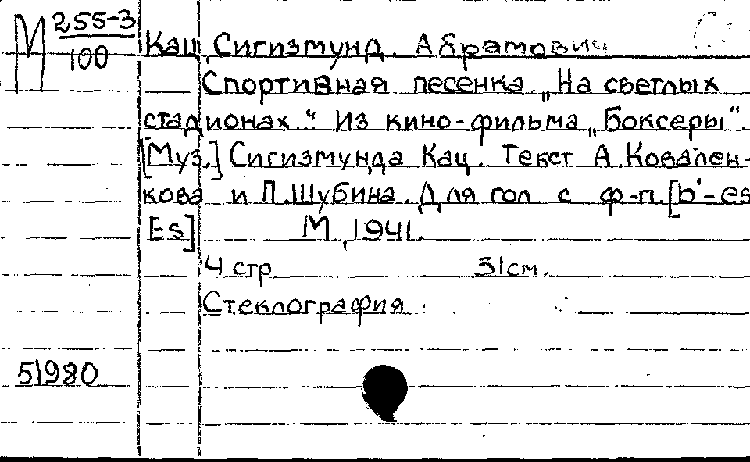 М 255-3
100
Кац, Сигизмунд Абрамович
Спортивная песенка „На светлых
стадионах." Из кино-фильма „Боксеры".
[Муз.] Сигизмунда Кац. Текст А. Ковален-
кова и П. Шубина. Для гол с ф-п. [b'-es
Es] М., 1941.
4 стр 31 см.
Стеклография.
51980